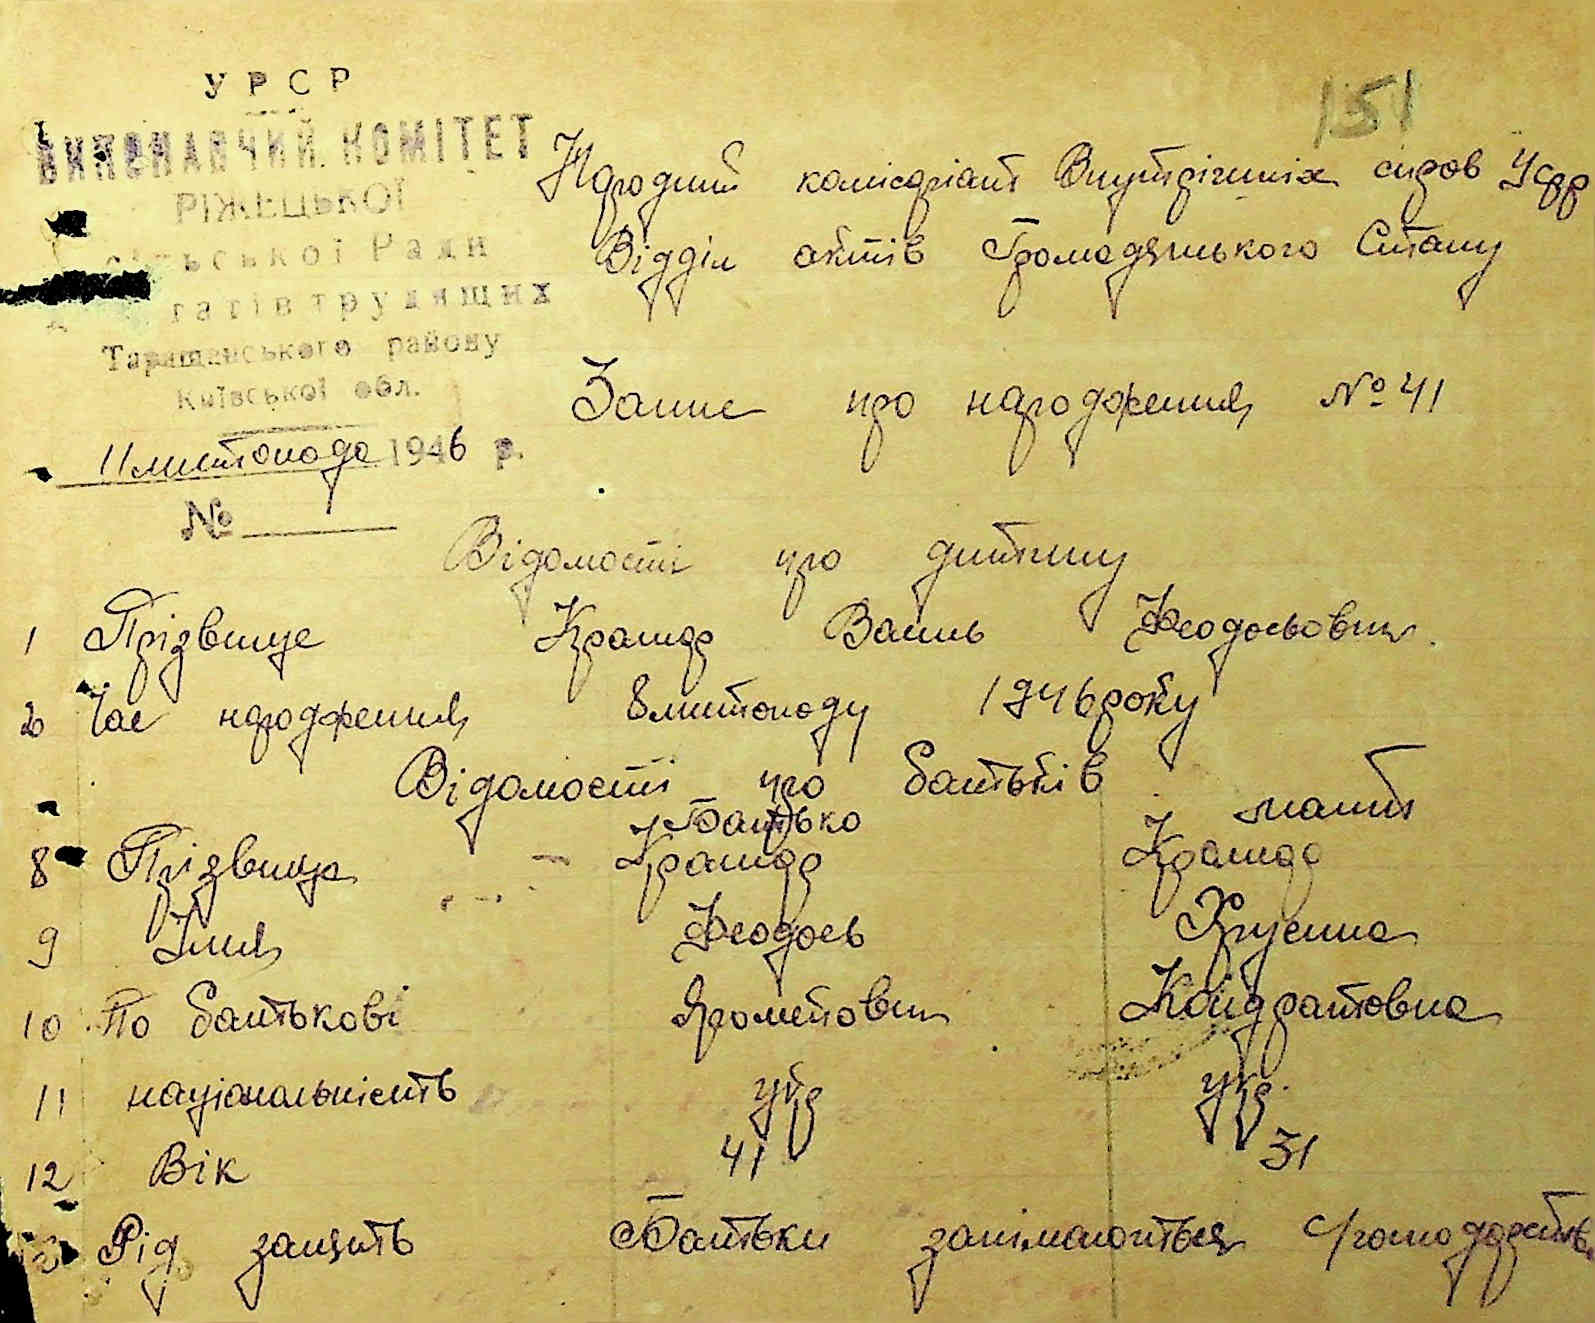 151
УРСР
ВИКОНАВЧИЙ КОМІТЕТ
РІЖЕЦЬКОЇ
сільської Ради
татів трудящих
Таращанського району
Київської обл.
11 листопада 1946 р.
№
Народний комісаріат Внутрішніх справ Усрр
Відділ актів Громадянського Стану
Запис про народження № 41
Відомості про дитину
1 Прізвище Крамар Василь Феодосьович
2 Час народження 8 листопаду 1946 року
Відомості про батьків
Батько мати
8 Прізвище Крамар Крамар
9 Імня Феодось
10 По батькові Кондратовна
11 національність укр укр.
12 Вік 41 31
13 Рід занять Батьки занімаються с/господарств.